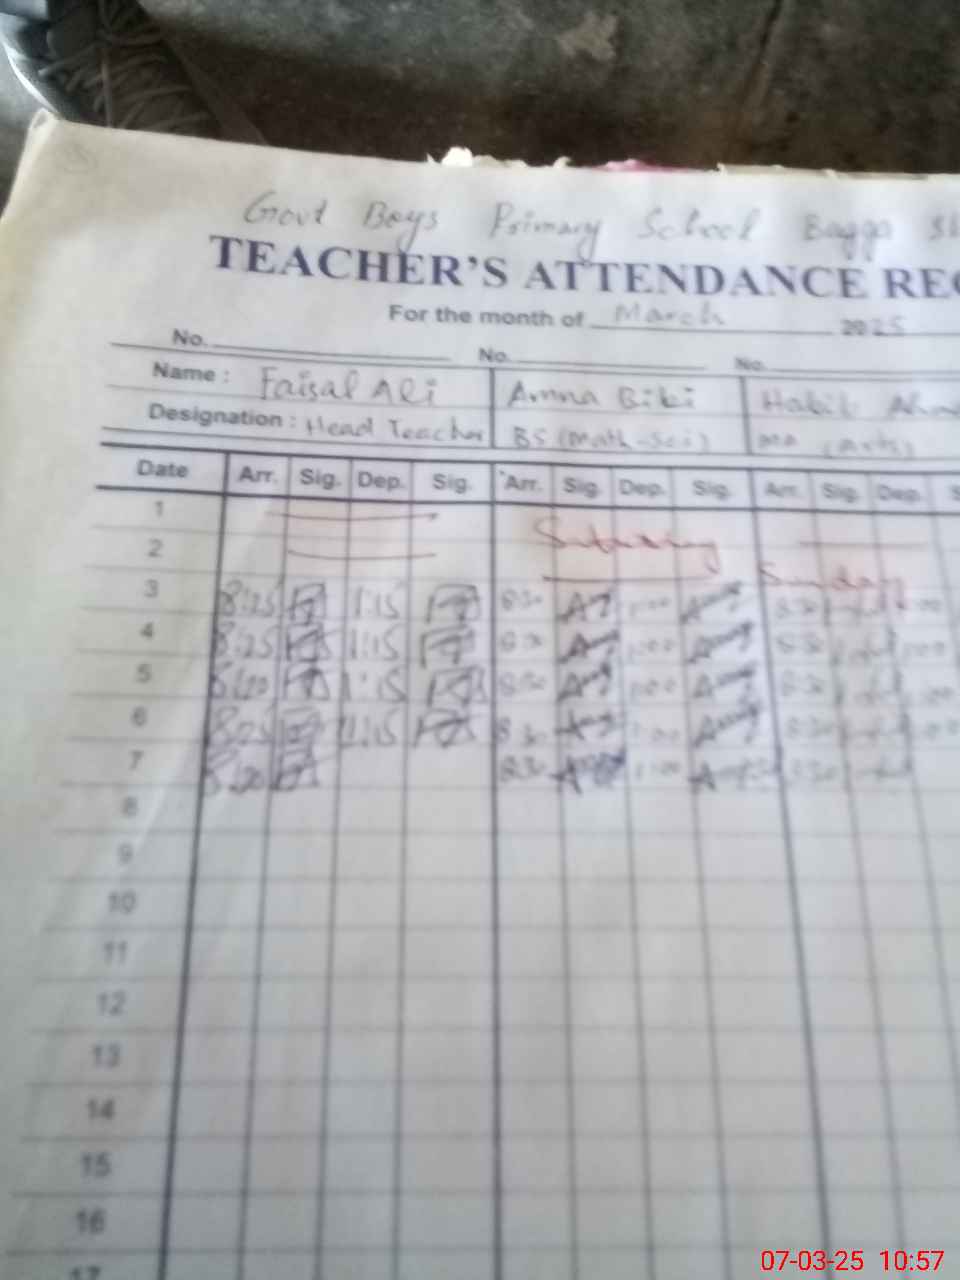 Govt Boys Primary School Bagga
TEACHER'S ATTENDANCE
For the month of March 2025
No. No. No.
Name : Faisal Ali Amna Bibi Habib
Designation : Head Teacher BS (Math-Sci) (Arts)
Date Arr. Sig. Dep. Sig. Arr. Sig. Dep. Sig. Arr. Sig. Dep.
1
2 Saturday
Sunday
3 8:25 1:15 8:30 1:00 8:30
4 8:25 1:15 8:30 1:00 8:30 1:00
5 8:20 1:15 8:30 1:00 8:30 1:00
6 8:25 1:15 8:30 1:00 8:30 1:00
7 8:20 8:30 1:00 8:30
8
9
10
11
12
13
14
15
16
17
07-03-25 10:57